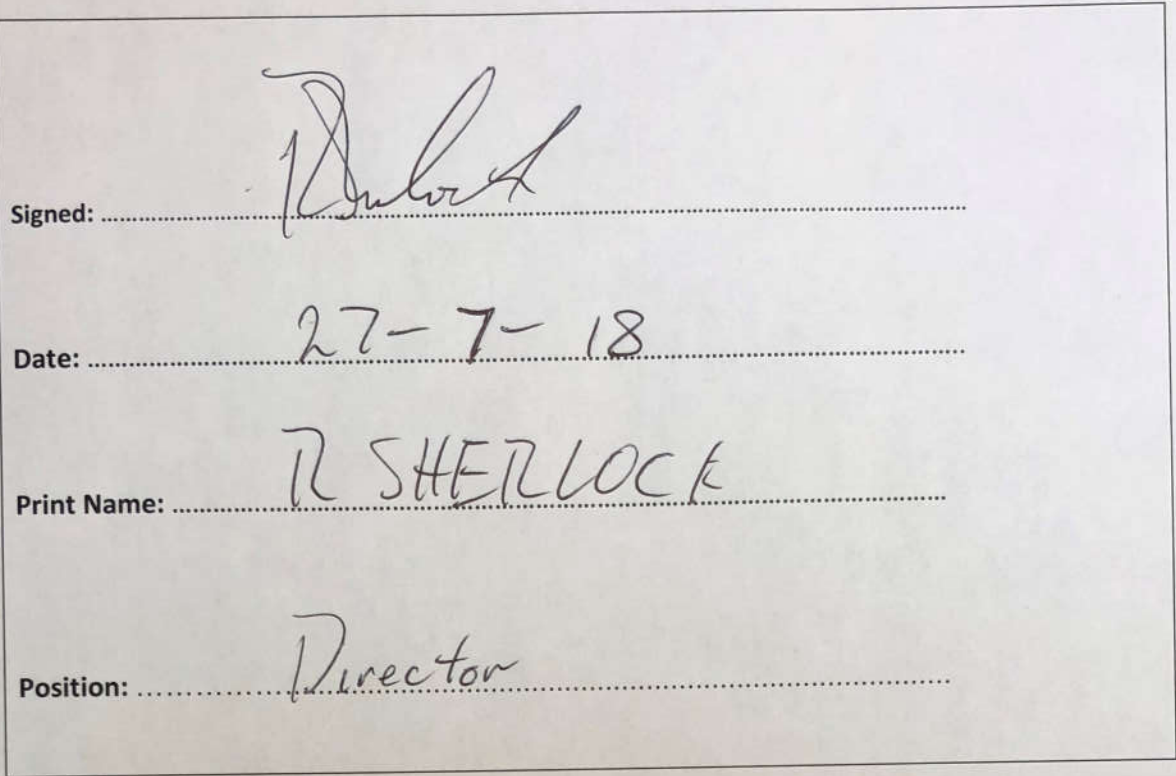 Signed:
Date: 27-7-18
Print Name: R SHERLOCK
Position: Director